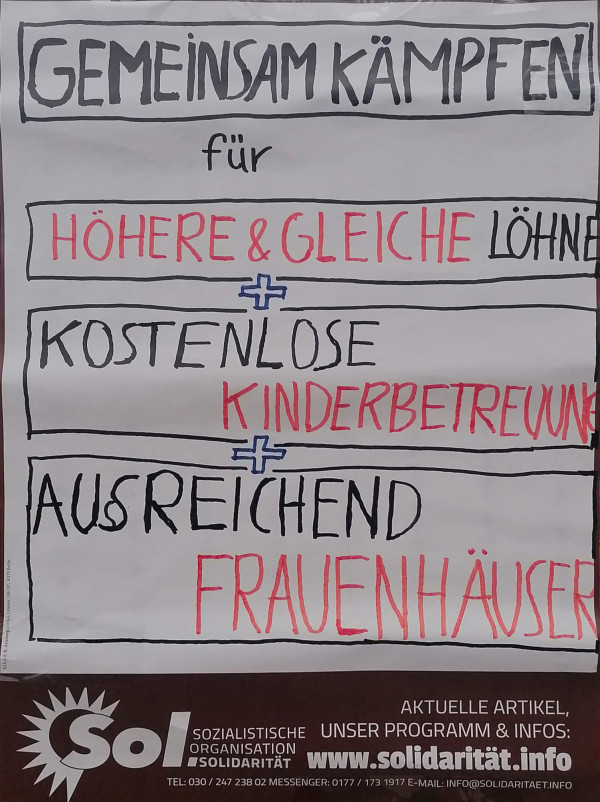 GEMEINSAM KÄMPFEN
für
HÖHERE & GLEICHE LÖHNE
+
KOSTENLOSE
KINDERBETREUUNG
+
AUSREICHEND
FRAUENHÄUSER
Sol.
SOZIALISTISCHE
ORGANISATION
SOLIDARITÄT
AKTUELLE ARTIKEL,
UNSER PROGRAMM & INFOS:
www.solidarität.info
TEL: 030 / 247 238 02 MESSENGER: 0177 / 173 1917 E-MAIL: INFO@SOLIDARITAET.INFO